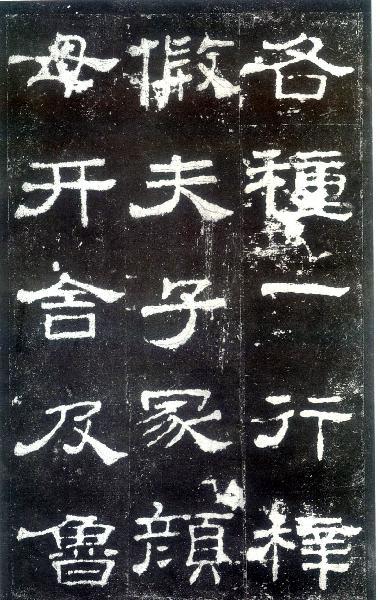 各種一行梓
假夫子冢顏
母开舍及魯